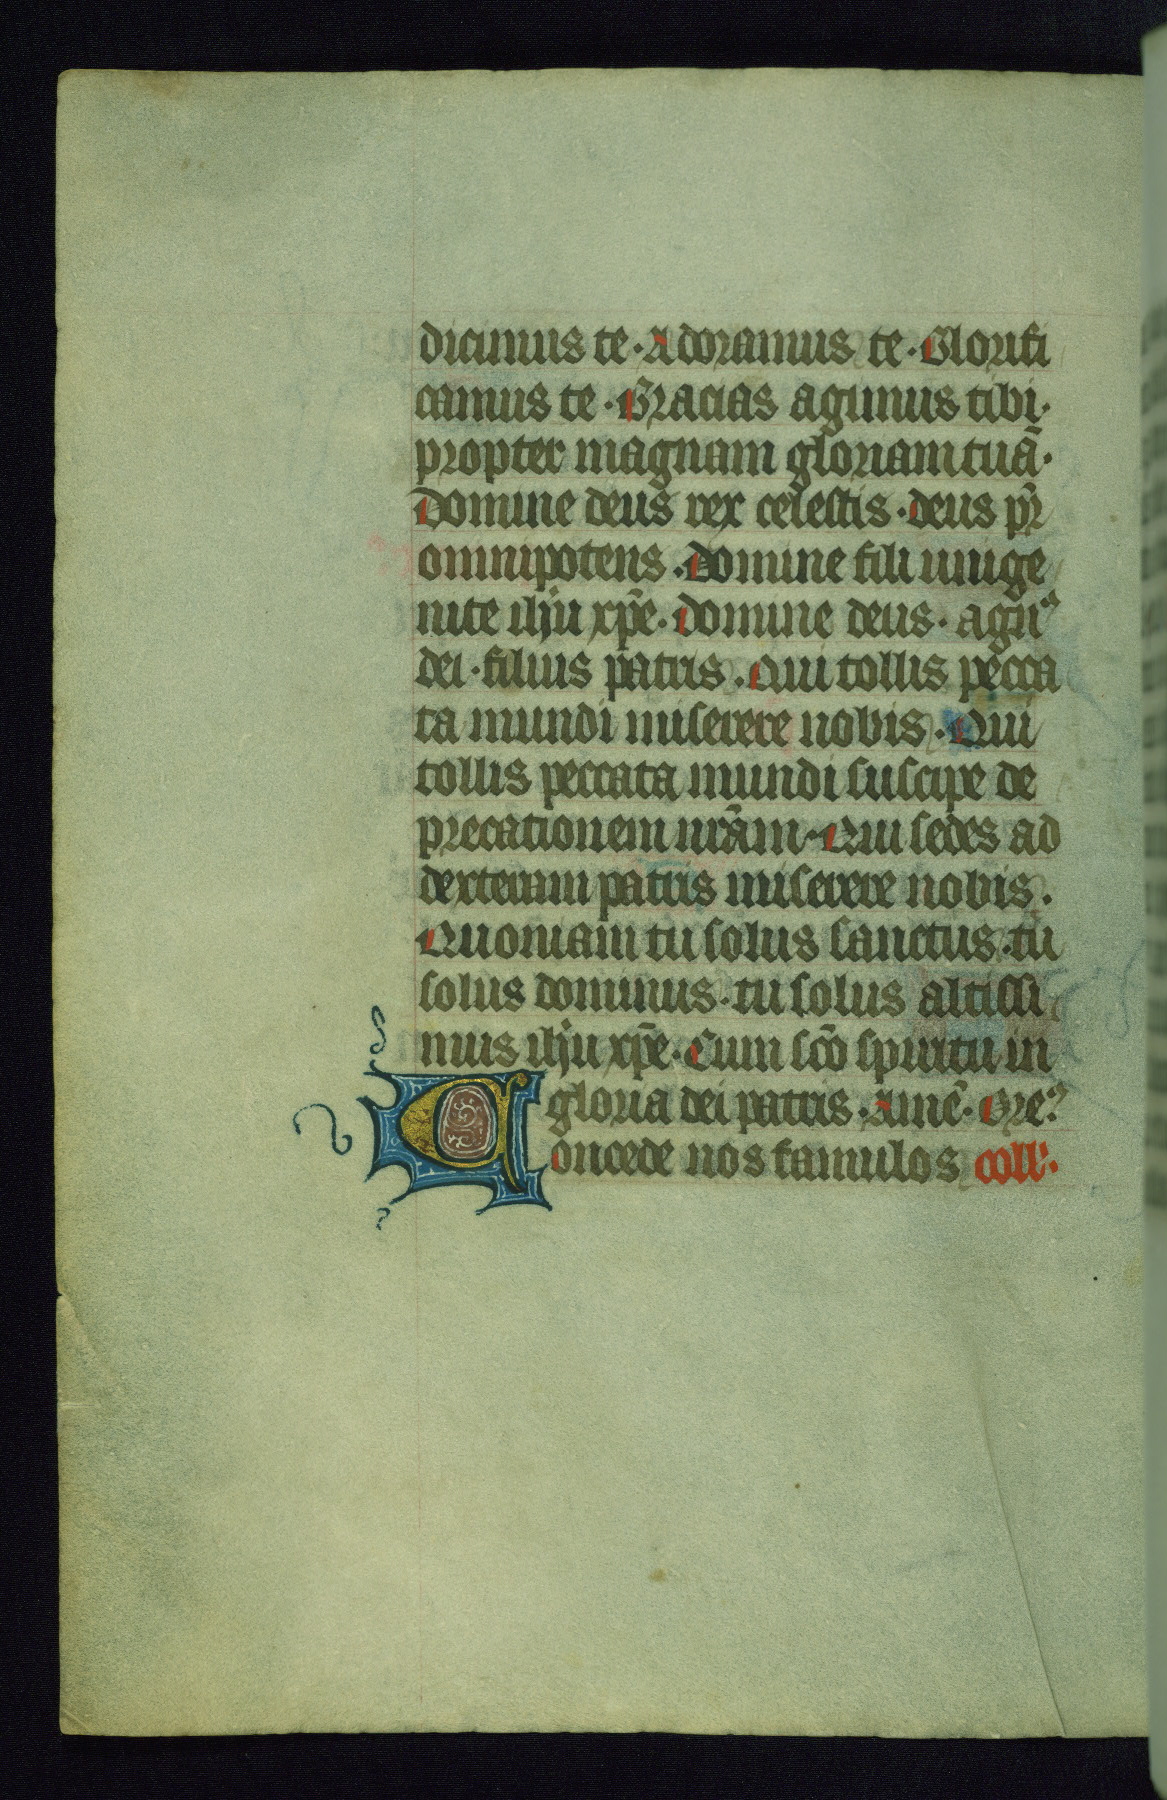 dicimus te · Adoramus te · Glorifi
camus te · Gracias agimus tibi ·
propter magnam gloriam tuā ·
Domine deus rex celestis · deus pr̄
omnipotens . Domine fili unige
nite ihū xp̄e · Domine deus · agnꝰ
dei · filius patris . Qui tollis pecca
ta mundi miserere nobis · Qui
tollis peccata mundi suscipe de
precationem nr̄am · Qui sedes ad
dexteram patris miserere nobis .
Quoniam tu solus sanctus · tu
solus dominus · tu solus altissi
mus ihū xp̄e · Cum sc̄o spiritu in
gloria dei patris · Amē · Ore ?
Concede nos famulos coll' ·